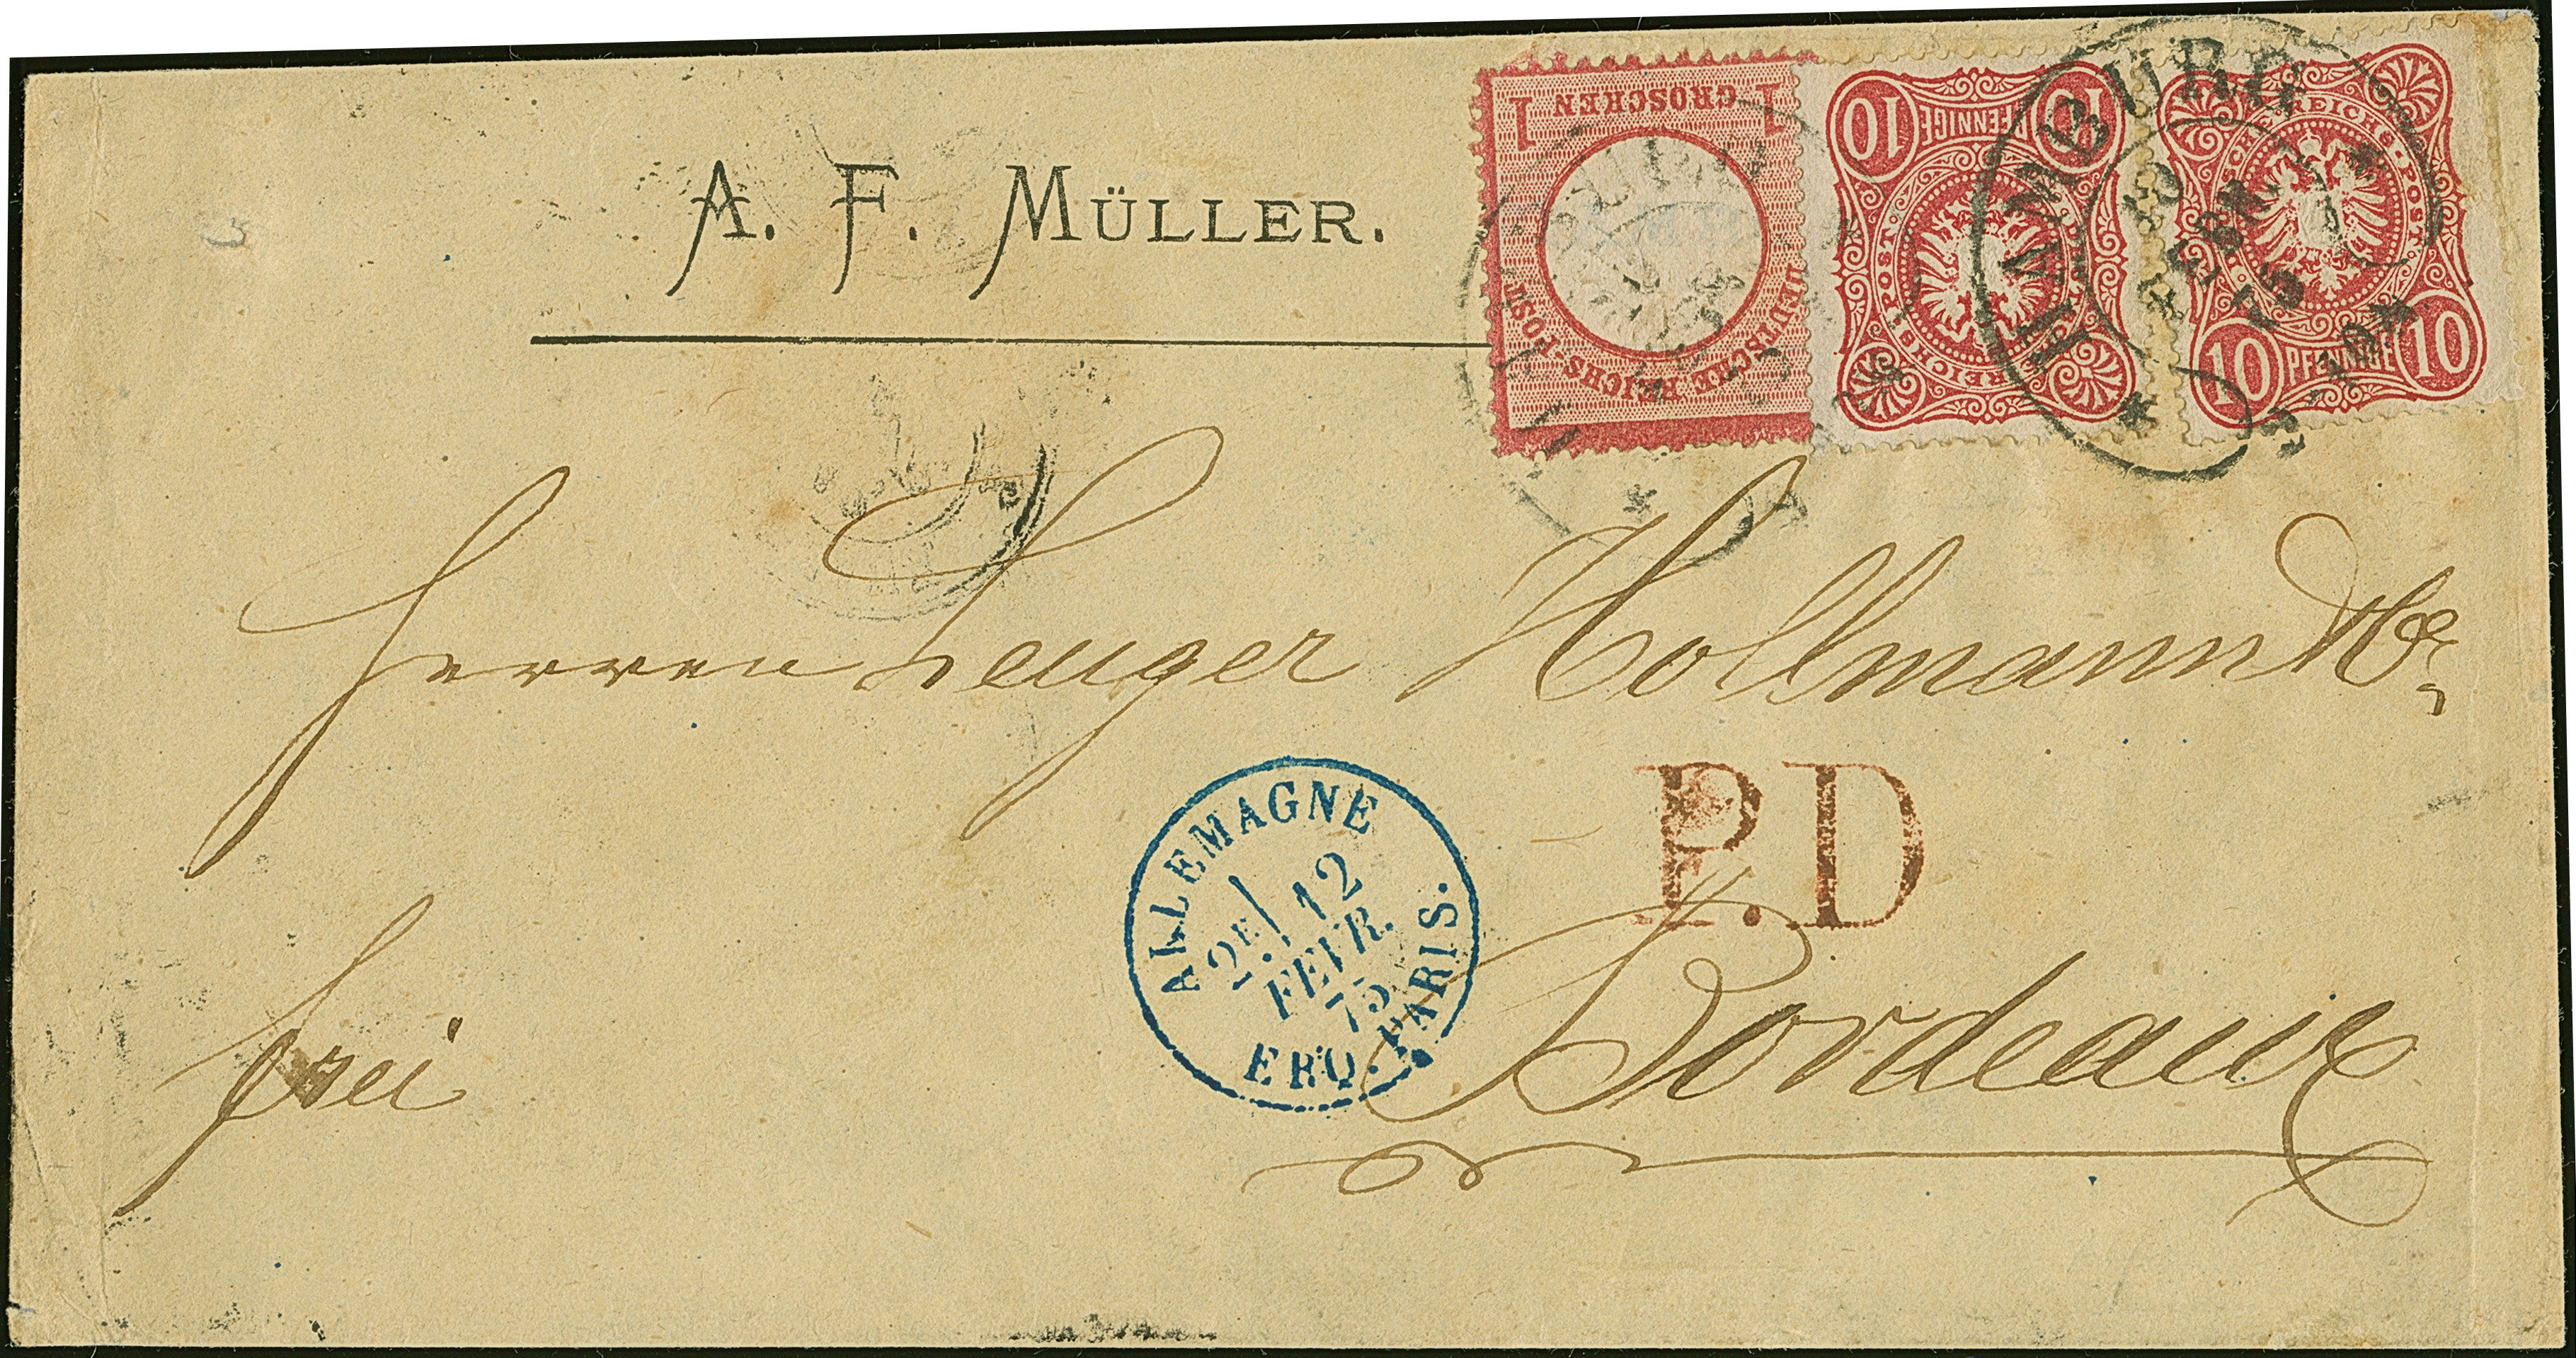 A. F. MÜLLER.
1 GROSCHEN 1
DEUTSCHE REICHS-POST
10 PFENNIGE 10
REICHS-POST
10 PFENNIGE 10
REICHS-POST
HAMBURG
75
Herren Hollmann & Co
P.D
ALLEMAGNE
2E 12
FEVR.
75
ERQ. PARIS.
frei
Bordeaux